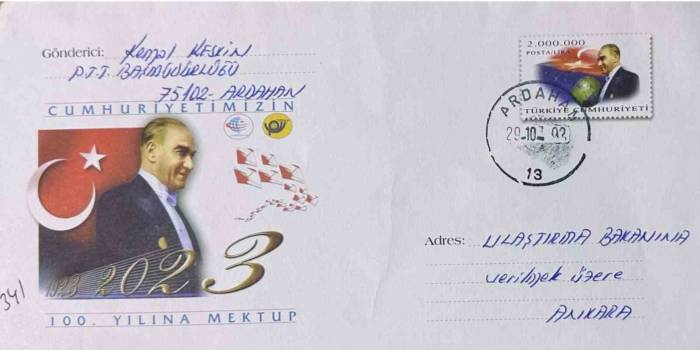 Gönderici: Kemal KESKİN
P.T.T. BAŞMÜDÜRLÜĞÜ
75102- ARDAHAN
CUMHURİYETİMİZİN
1923 2023
100. YILINA MEKTUP
341
2.000.000
POSTA/LİRA
TÜRKİYE CUMHURİYETİ
ARDAHAN
29-10
13
Adres: ULAŞTIRMA BAKANINA
verilmek üzere
ANKARA